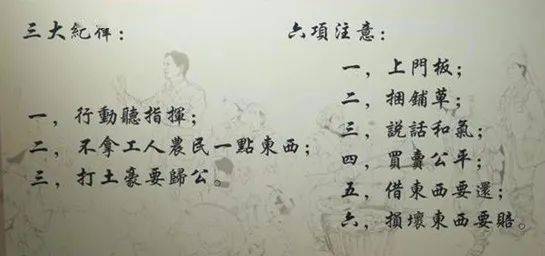 三大紀律：
一，行動聽指揮；
二，不拿工人農民一點東西；
三，打土豪要歸公。
六項注意：
一，上門板；
二，捆鋪草；
三，説話和氣；
四，買賣公平；
五，借東西要還；
六，損壞東西要賠。